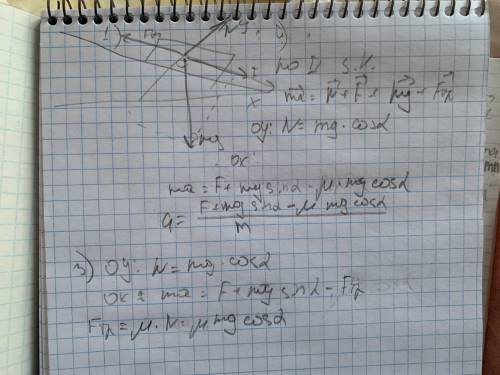 1) Fтр N y. 2)
по II з.К.
F
x
ma = N + F + mg + Fтр
mg
oy: N = mg · cosα
ox:
ma = F + mg sinα - μ · mg cosα
a = F + mg sinα - μ mg cosα
m
3) oy: N = mg · cosα
ox: ma = F + mg sinα - Fтр
Fтр = μ · N = μ mg cosα